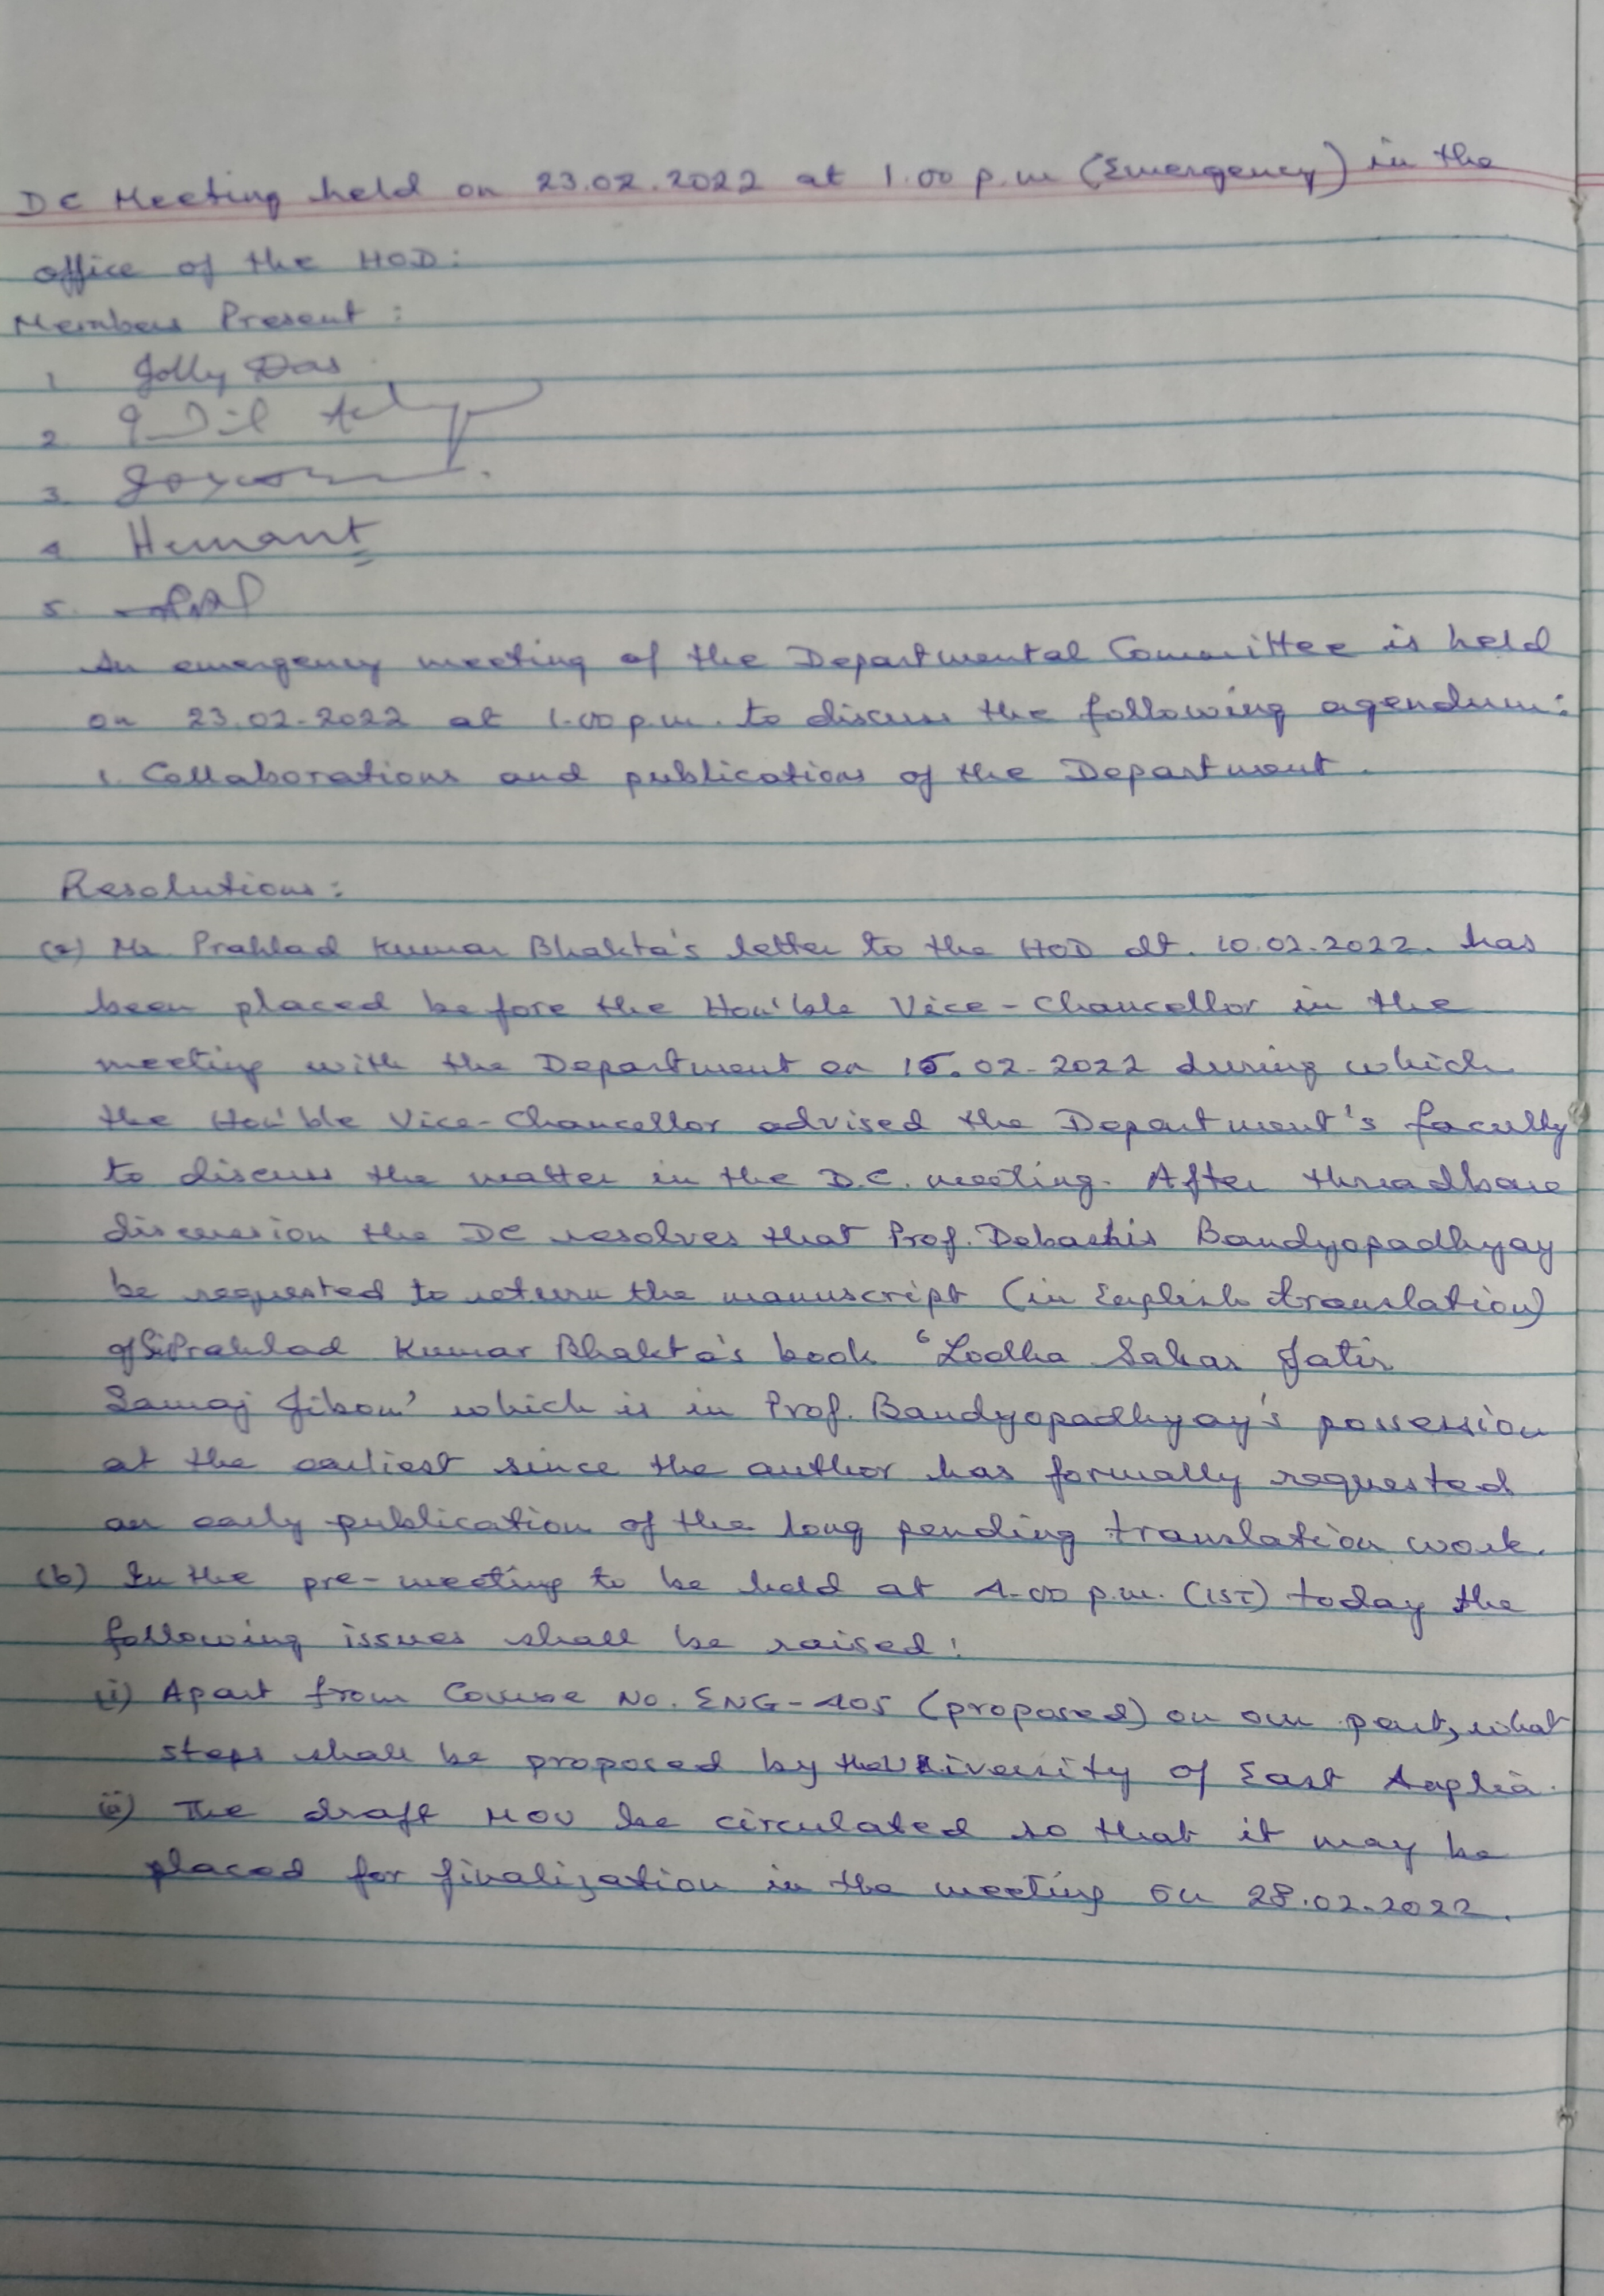 DC Meeting held on 23.02.2022 at 1.00 p.m (Emergency) in the
office of the HOD:
Members Present :
1. Jolly Das
2.
3.
4. Hemant
5.
An emergency meeting of the Departmental Committee is held
on 23.02.2022 at 1.00 p.m. to discuss the following agendum:
1. Collaborations and publications of the Department.
Resolutions:
(a) Mr. Prahlad Kumar Bhakta's letter to the HOD dt. 10.02.2022. has
been placed before the Hon'ble Vice-Chancellor in the
meeting with the Department on 15.02.2022 during which
the Hon'ble Vice-Chancellor advised the Department's faculty
to discuss the matter in the D.C. meeting. After threadbare
discussion the DC resolves that Prof. Debashis Bandyopadhyay
be requested to return the manuscript (in English translation)
of Sri Prahlad Kumar Bhakta's book 'Lodha Sabar Jatir
Samaj Jibon' which is in Prof. Bandyopadhyay's possession
at the earliest since the author has formally requested
an early publication of the long pending translation work.
(b) In the pre-meeting to be held at 4.00 p.m. (IST) today the
following issues shall be raised:
(i) Apart from Course No. ENG-405 (proposed) on our part, what
steps shall be proposed by the University of East Anglia.
(ii) The draft MOU be circulated so that it may be
placed for finalization in the meeting on 28.02.2022.